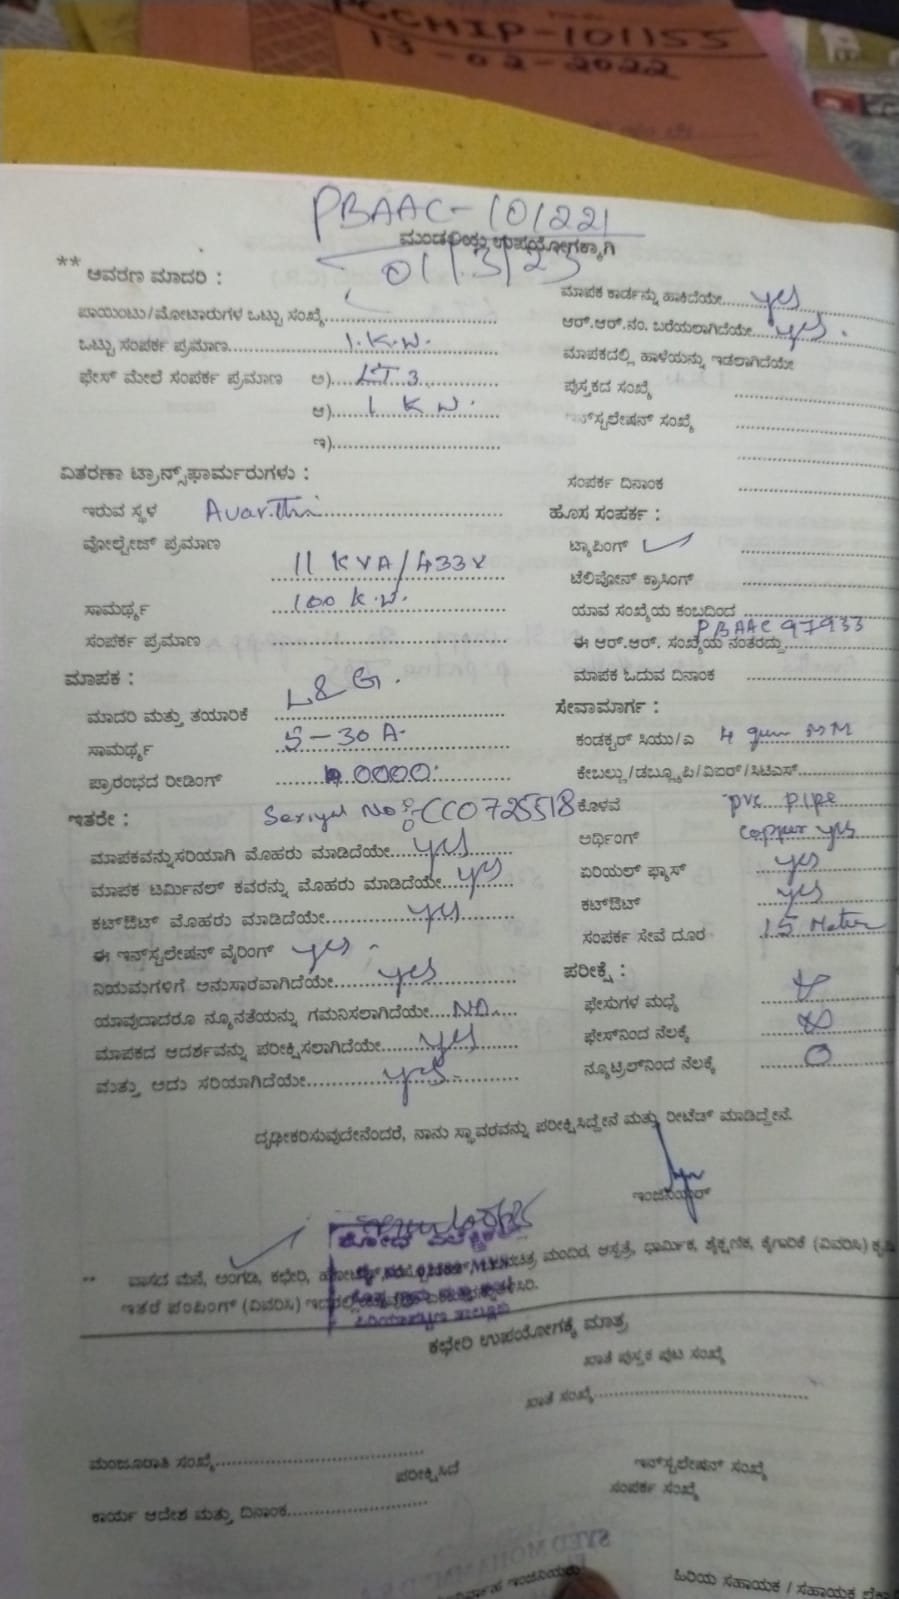 PGCCHIP-101155
13-02-2022
PBAAC-101221
ಮಂಡಳಿಯ ಉಪಯೋಗಕ್ಕಾಗಿ
01/3/23
** ಆವರಣ ಮಾದರಿ :
ಪಾಯಿಂಟು/ಮೋಟಾರುಗಳ ಒಟ್ಟು ಸಂಖ್ಯೆ
ಒಟ್ಟು ಸಂಪರ್ಕ ಪ್ರಮಾಣ 1.K.W.
ಫೇಸ್ ಮೇಲೆ ಸಂಪರ್ಕ ಪ್ರಮಾಣ ಅ) LT 3
ಆ) 1 K W.
ಇ)
ವಿತರಣಾ ಟ್ರಾನ್ಸ್‌ಫಾರ್ಮರುಗಳು :
ಇರುವ ಸ್ಥಳ Avarthi
ವೋಲ್ಟೇಜ್ ಪ್ರಮಾಣ
11 KVA/433V
ಸಾಮರ್ಥ್ಯ 100 K.W.
ಸಂಪರ್ಕ ಪ್ರಮಾಣ
ಮಾಪಕ :
L&G.
ಮಾದರಿ ಮತ್ತು ತಯಾರಿಕೆ
ಸಾಮರ್ಥ್ಯ 5-30 A.
ಪ್ರಾರಂಭದ ರೀಡಿಂಗ್ 0000
ಇತರೇ : Seriyal No:-CC0725518
ಮಾಪಕವನ್ನು ಸರಿಯಾಗಿ ಮೊಹರು ಮಾಡಿದೆಯೇ yes
ಮಾಪಕ ಟರ್ಮಿನಲ್ ಕವರನ್ನು ಮೊಹರು ಮಾಡಿದೆಯೇ yes
ಕಟ್‌ಔಟ್ ಮೊಹರು ಮಾಡಿದೆಯೇ yes
ಈ ಇನ್‌ಸ್ಟಲೇಷನ್ ವೈರಿಂಗ್ yes.
ನಿಯಮಗಳಿಗೆ ಅನುಸಾರವಾಗಿದೆಯೇ yes
ಯಾವುದಾದರೂ ನ್ಯೂನತೆಯನ್ನು ಗಮನಿಸಲಾಗಿದೆಯೇ NO.
ಮಾಪಕದ ಆದರ್ಶವನ್ನು ಪರೀಕ್ಷಿಸಲಾಗಿದೆಯೇ yes
ಮತ್ತು ಅದು ಸರಿಯಾಗಿದೆಯೇ yes.
ಮಾಪಕ ಕಾರ್ಡನ್ನು ಹಾಕಿದೆಯೇ yes
ಆರ್.ಆರ್.ನಂ. ಬರೆಯಲಾಗಿದೆಯೇ yes.
ಮಾಪಕದಲ್ಲಿ ಹಾಳೆಯನ್ನು ಇಡಲಾಗಿದೆಯೇ
ಪುಸ್ತಕದ ಸಂಖ್ಯೆ
ಇನ್‌ಸ್ಟಲೇಷನ್ ಸಂಖ್ಯೆ
ಸಂಪರ್ಕ ದಿನಾಂಕ
ಹೊಸ ಸಂಪರ್ಕ :
ಟ್ಯಾಪಿಂಗ್
ಟೆಲಿಪೋನ್ ಕ್ರಾಸಿಂಗ್
ಯಾವ ಸಂಖ್ಯೆಯ ಕಂಬದಿಂದ
PBAAC 97933
ಈ ಆರ್.ಆರ್. ಸಂಖ್ಯೆಯ ನಂತರದ್ದು
ಮಾಪಕ ಓದುವ ದಿನಾಂಕ
ಸೇವಾಮಾರ್ಗ :
ಕಂಡಕ್ಟರ್ ಸಿಯು/ಎ 4 MM
ಕೇಬಲ್ಲು/ಡಬ್ಲ್ಯೂಪಿ/ವಿಐಆರ್/ಸಿಟಿಎಸ್
ಕೊಳವೆ pvc pipe
ಅರ್ಥಿಂಗ್ copper yes
ಏರಿಯಲ್ ಫ್ಯೂಸ್ yes
ಕಟ್‌ಔಟ್ yes
ಸಂಪರ್ಕ ಸೇವೆ ದೂರ 15 Meter
ಪರೀಕ್ಷೆ :
ಫೇಸುಗಳ ಮಧ್ಯೆ
ಫೇಸ್‌ನಿಂದ ನೆಲಕ್ಕೆ
ನ್ಯೂಟ್ರಲ್‌ನಿಂದ ನೆಲಕ್ಕೆ 0
ದೃಢೀಕರಿಸುವುದೇನೆಂದರೆ, ನಾನು ಸ್ಥಾವರವನ್ನು ಪರೀಕ್ಷಿಸಿದ್ದೇನೆ ಮತ್ತು ರೀಟೆಡ್ ಮಾಡಿದ್ದೇನೆ.
ಇಂಜಿನಿಯರ್
** ವಾಸದ ಮನೆ, ಅಂಗಡಿ, ಕಛೇರಿ, ಮಂದಿರ, ಆಸ್ಪತ್ರೆ, ಧಾರ್ಮಿಕ, ಶೈಕ್ಷಣಿಕ, ಕೈಗಾರಿಕೆ (ವಿವರಿಸಿ) ಕೃಷಿ
ಇತರೆ ಪಂಪಿಂಗ್ (ವಿವರಿಸಿ)
ಕಛೇರಿ ಉಪಯೋಗಕ್ಕೆ ಮಾತ್ರ
ಖಾತೆ ಪುಸ್ತಕ ಪುಟ ಸಂಖ್ಯೆ
ಖಾತೆ ಸಂಖ್ಯೆ
ಮಂಜೂರಾತಿ ಸಂಖ್ಯೆ
ಪರೀಕ್ಷಿಸಿದೆ
ಇನ್‌ಸ್ಟಲೇಷನ್ ಸಂಖ್ಯೆ
ಸಂಪರ್ಕ ಸಂಖ್ಯೆ
ಕಾರ್ಯ ಆದೇಶ ಮತ್ತು ದಿನಾಂಕ
ಹಿರಿಯ ಸಹಾಯಕ / ಸಹಾಯಕ